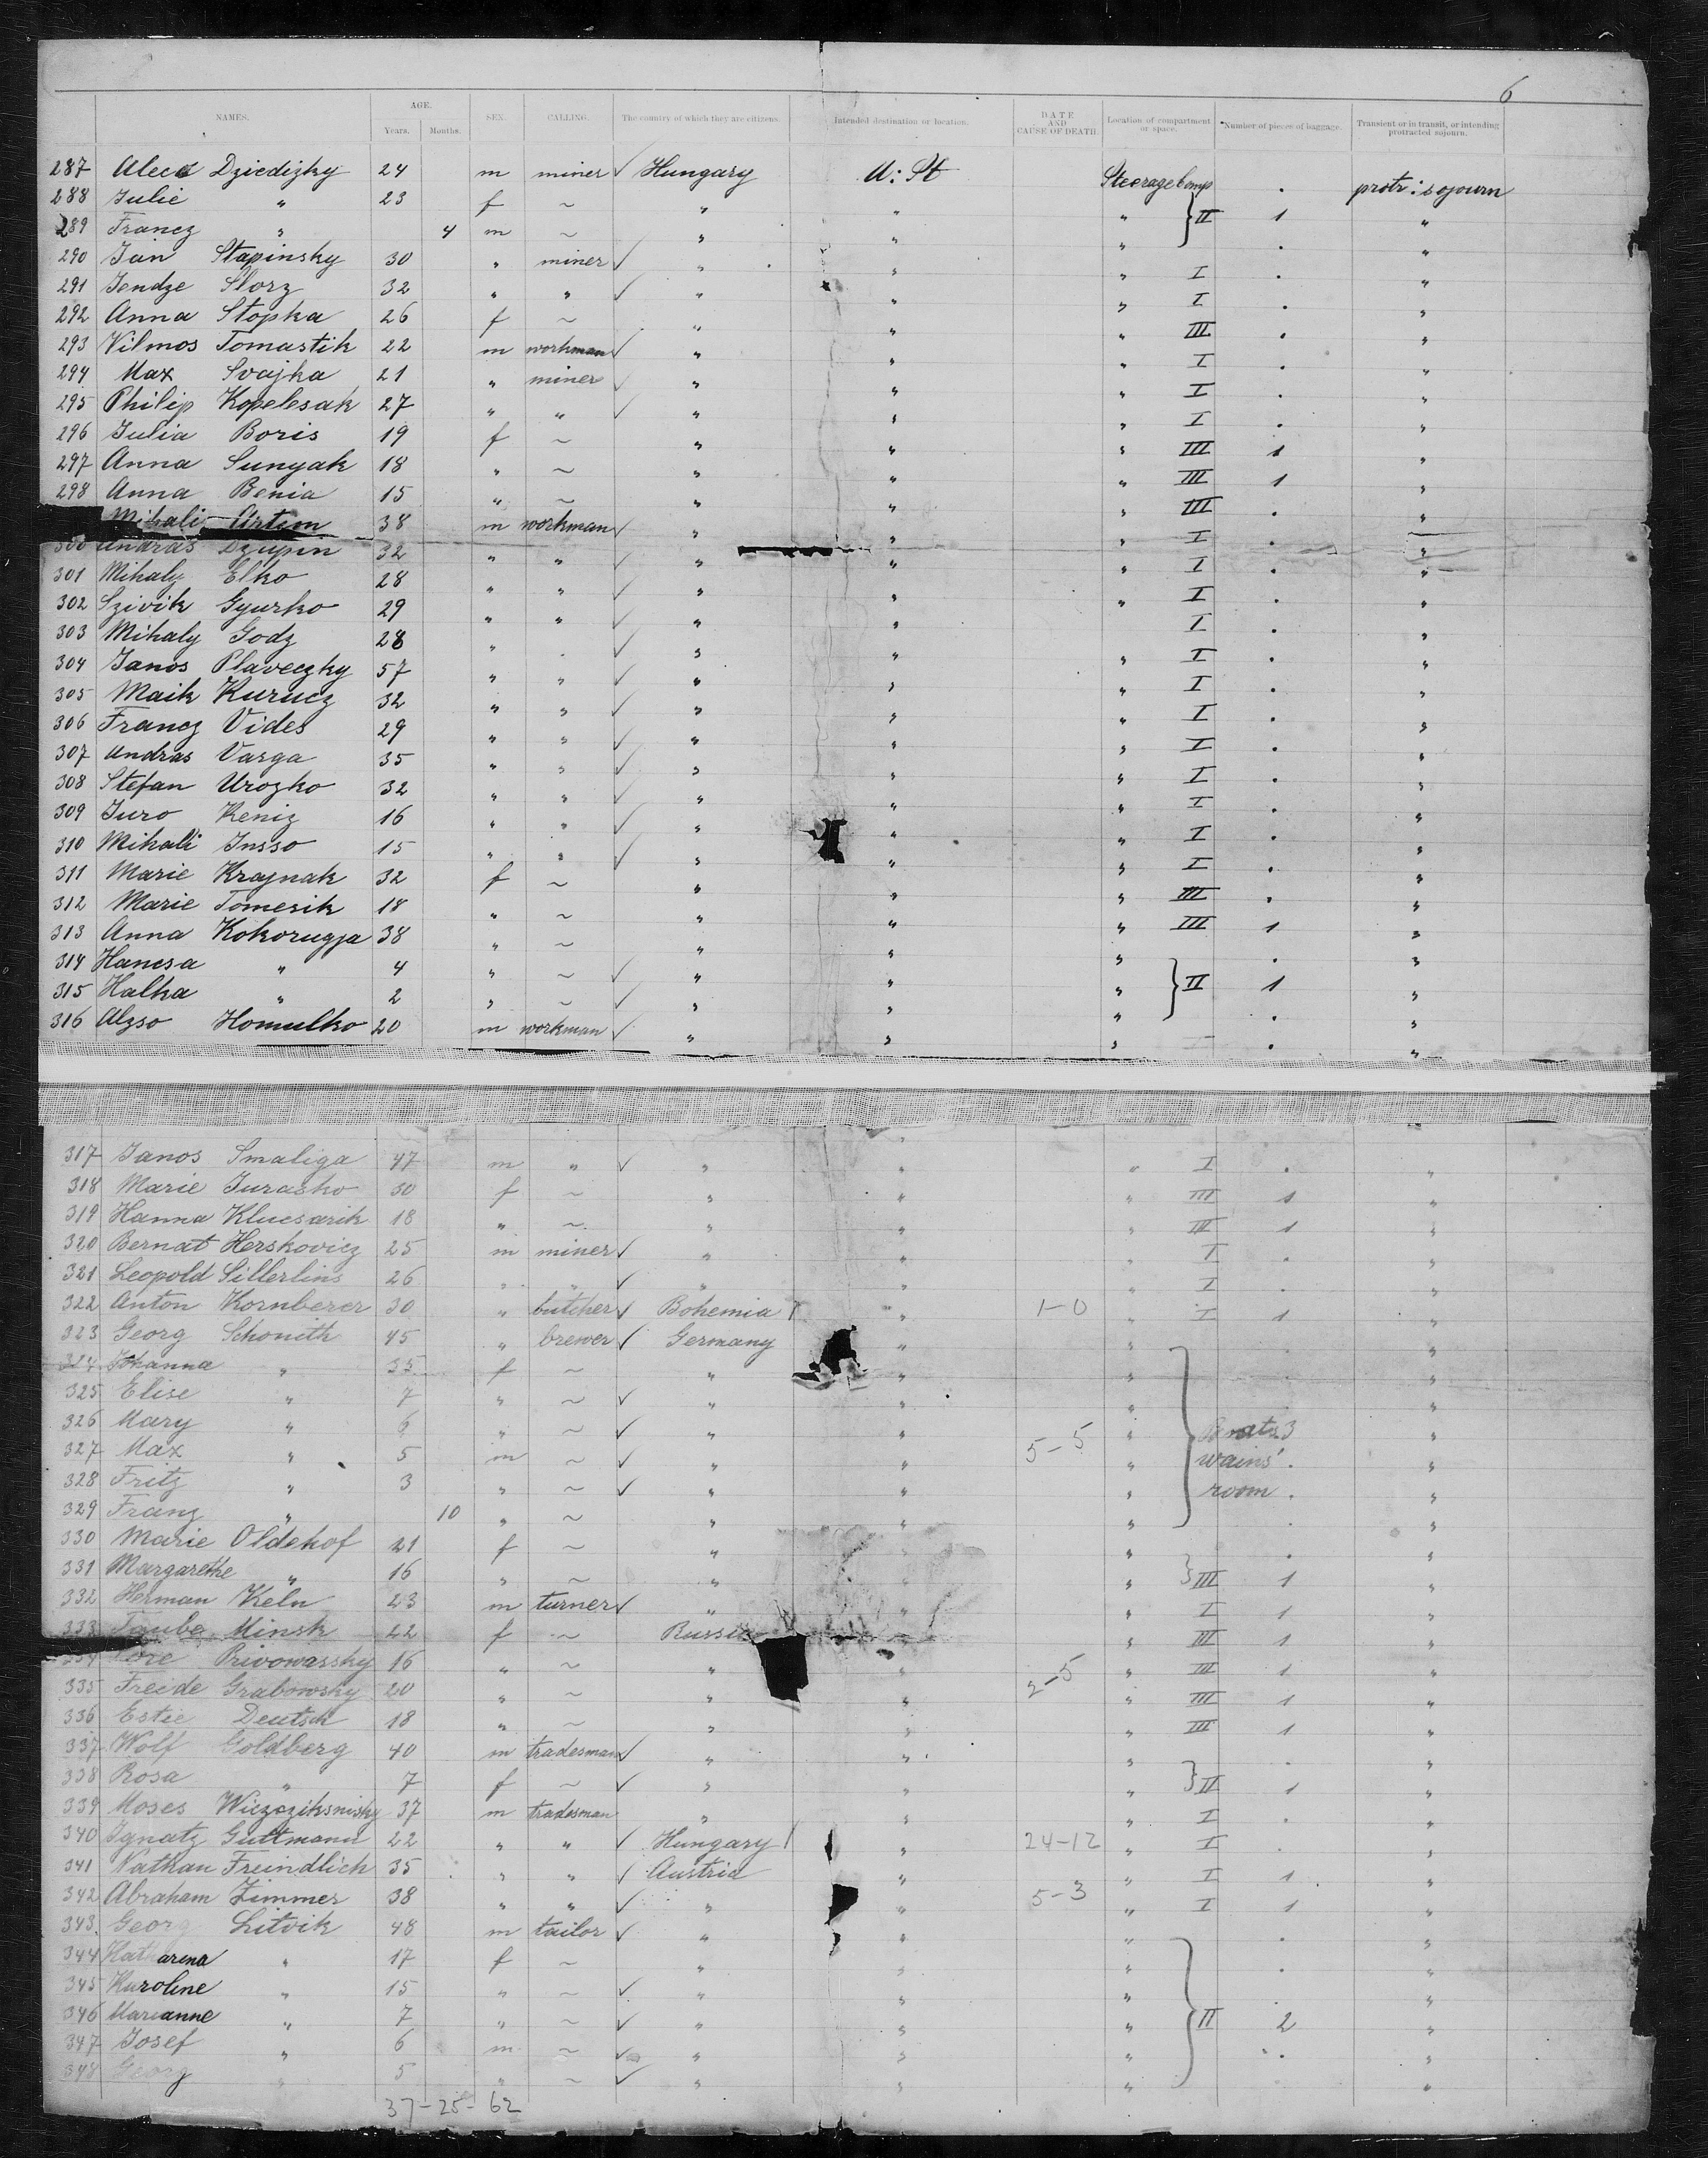 6
NAMES. AGE. Years. Months. SEX. CALLING. The country of which they are citizens. Intended destination or location. DATE AND CAUSE OF DEATH. Location of compartment or space. Number of pieces of baggage. Transient or in transit, or intending protracted sojourn.
287 Dziedizky 24 m miner ✓ Hungary U: St Steerage Comp . protr: sojourn
288 Julie " 23 f ~ " " " } II 1 "
289 Francz " 4 m ~ " " " . "
290 Jan Stapinsky 30 " miner ✓ " " " I . "
291 Jendze Slorz 32 " " ✓ " " " I . "
292 Anna Stopka 26 f ~ " " " III . "
293 Vilmos Tomastik 22 m workman ✓ " " " I . "
294 Max Svajka 21 " miner ✓ " " " I . "
295 Philip Kopelesak 27 " " ✓ " " " I . "
296 Julia Boris 19 f ~ " " " III 1 "
297 Anna Sunyak 18 " ~ " " " III 1 "
298 Anna Benia 15 " ~ " " " III . "
Mihali Artem 38 m workman ✓ " " " I . "
300 Andras Dzupin 32 " " ✓ " " " I . "
301 Mihaly Elko 28 " " ✓ " " " I . "
302 Szivik Gyurko 29 " " ✓ " " I . "
303 Mihaly Godz 28 " . ✓ " " " I . "
304 Janos Plaveczky 57 " " ✓ " " " I . "
305 Maik Kurucz 32 " " ✓ " " " I . "
306 Francz Vides 29 " " ✓ " " " I . "
307 Andras Varga 35 " " ✓ " " " I . "
308 Stefan Urozko 32 " " ✓ " " " I . "
309 Juro Keniz 16 " " ✓ " " " I . "
310 Mihali Insso 15 " " ✓ " " " I . "
311 Marie Krajnak 32 f ~ " " " III . "
312 Marie Tomesik 18 " ~ " " " III 1 "
313 Anna Kokorugja 38 " ~ " " " . "
314 Hancsa " 4 " ~ ✓ " " " } II 1 "
315 Halka " 2 " ~ ✓ " " " . "
316 Alzso Homulko 20 m workman ✓ " " " I . "
317 Janos Smaliga 47 m " ✓ " " " I . "
318 Marie Jurasko 30 f ~ " " " III 1 "
319 Hanna Klucsarik 18 " ~ " " " III 1 "
320 Bernat Herskovicz 25 m miner ✓ " " " I . "
321 Leopold Sillerlins 26 " " ✓ " " " I . "
322 Anton Kornberer 30 " butcher ✓ Bohemia " 1-0 " I 1 "
323 Georg Schonith 45 " brewer ✓ Germany " " . "
324 Johanna " 35 f ~ " " " . "
325 Elise " 7 " ~ ✓ " " " "
326 Mary " 6 " ~ ✓ " " " Boats 3 "
327 Max " 5 m ~ ✓ " " 5-5 " wains' . "
328 Fritz " 3 " ~ ✓ " " " room . "
329 Franz " 10 " ~ " " " . "
330 Marie Oldehof 21 f ~ " " " . "
331 Margarethe " 16 " ~ " " " } III 1 "
332 Herman Keln 23 m turner ✓ " " " I 1 "
333 Taube Minsk 22 f ~ Russia " III 1 "
334 Privowassky 16 " ~ " " 2-5 " III 1 "
335 Freide Grabowsky 20 " ~ " " " III 1 "
336 Estie Deutsch 18 " ~ " " " III 1 "
337 Wolf Goldberg 40 m tradesman ✓ " " " . "
338 Rosa " 7 f ~ ✓ " " " } II 1 "
339 Moses 37 m tradesman " " " I . "
340 Ignatz Guttmann 22 " " ✓ Hungary " 24-12 " I . "
341 Nathan Freindlich 35 " " ✓ Austria " " I 1 "
342 Abraham Zimmer 38 " " ✓ " " 5-3 " I 1 "
343 Georg Litvik 48 m tailor ✓ " " " . "
344 Katharena " 17 f ~ " " " . "
345 Karoline " 15 " ~ ✓ " " " . "
346 Marianne " 7 " ~ ✓ " " " } II 2 "
347 Josef " 6 m ~ ✓ " " " . "
348 Georg " 5 " ~ ✓ " " " "
37-25-62